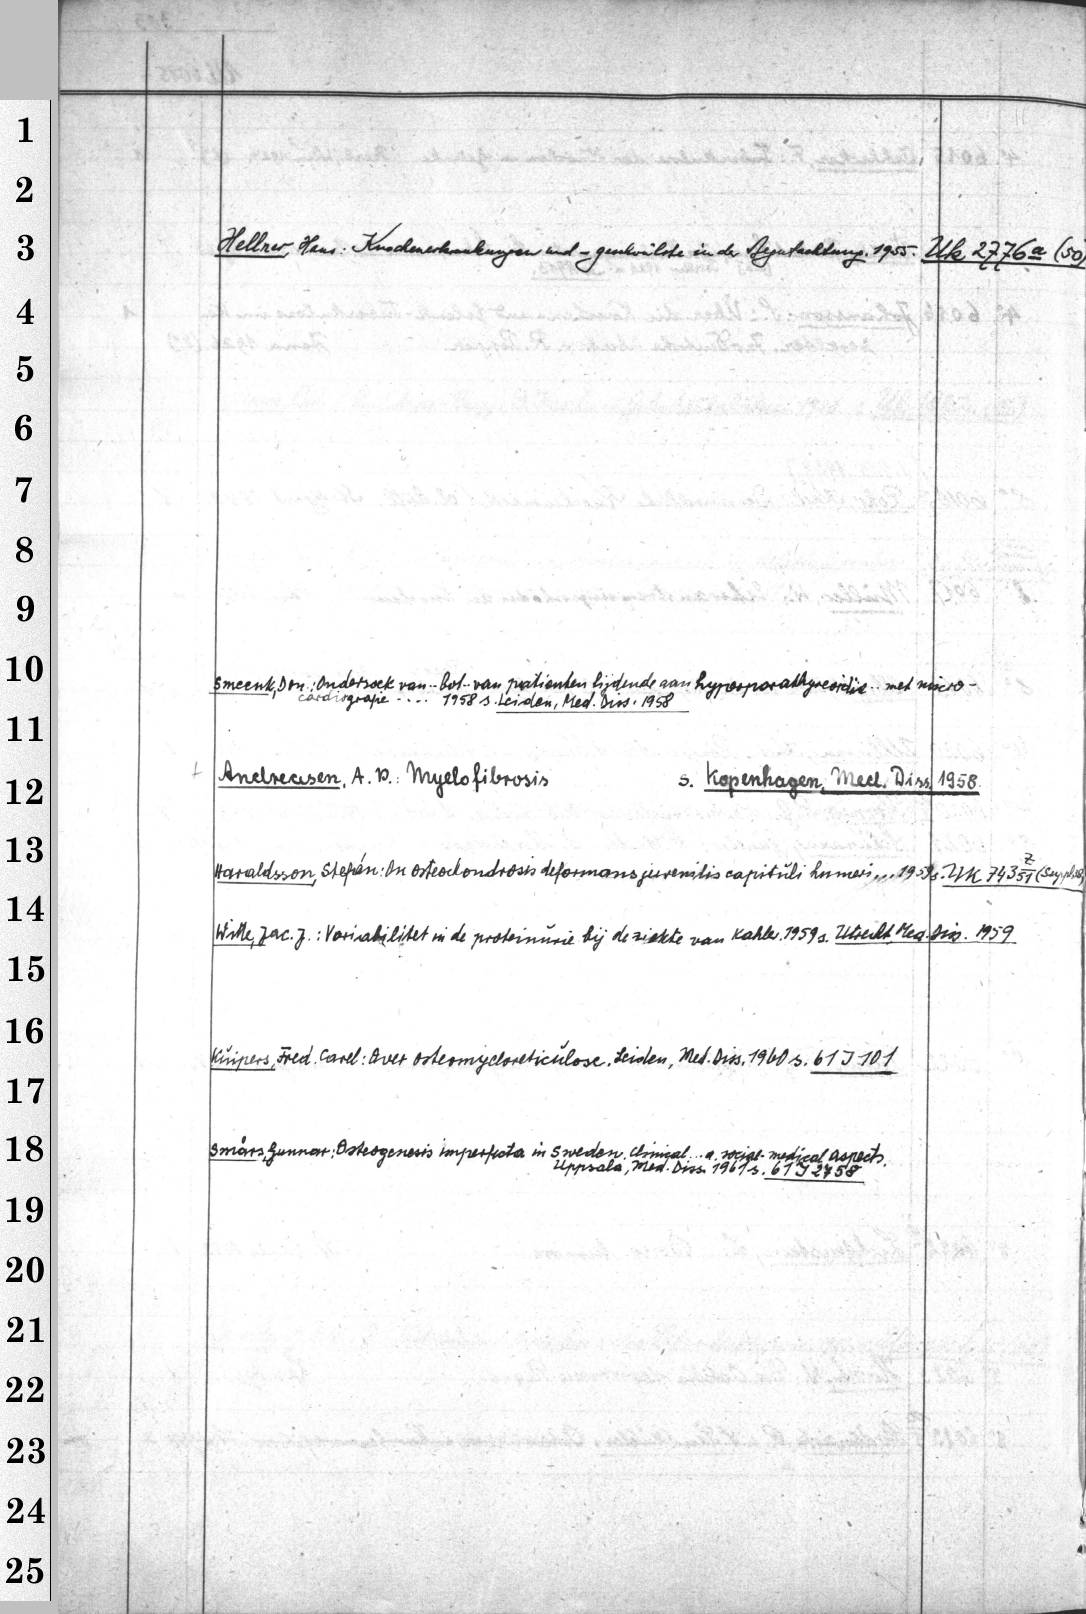 1
2
3 Hellner, Hans: Knochenerkrankungen und -geschwülste in der Begutachtung. 1955. Uk 2776a (50)
4
5
6
7
8
9
10 Smeenk, Don.: Onderzoek van.. bot.. van patienten lijdende aan hyperparathyreoidie.. met micro-
cardiografie .... 1958 s. Leiden, Med. Diss. 1958
11
12 Andreasen, A. P.: Myelofibrosis s. Kopenhagen, Med. Diss. 1958
13 Haraldsson, Stefán: On osteochondrosis deformans juvenilis capituli humeri... 1959 s. Uk 743 z/51 (Suppl. 38)
14 Witte, Jac. J.: Variabilitet in de proteinurie bij de ziekte van Kahler. 1959 s. Utrecht, Med. Diss. 1959
15
16 Kuipers, Fred. Carel: Over osteomyeloreticulose. Leiden, Med. Diss. 1960 s. 61 J 101
17
18 Smårs, Gunnar: Osteogenesis imperfecta in Sweden. Clinical... a. social-medical aspects.
Uppsala, Med. Diss. 1961 s. 61 J 2758
19
20
21
22
23
24
25